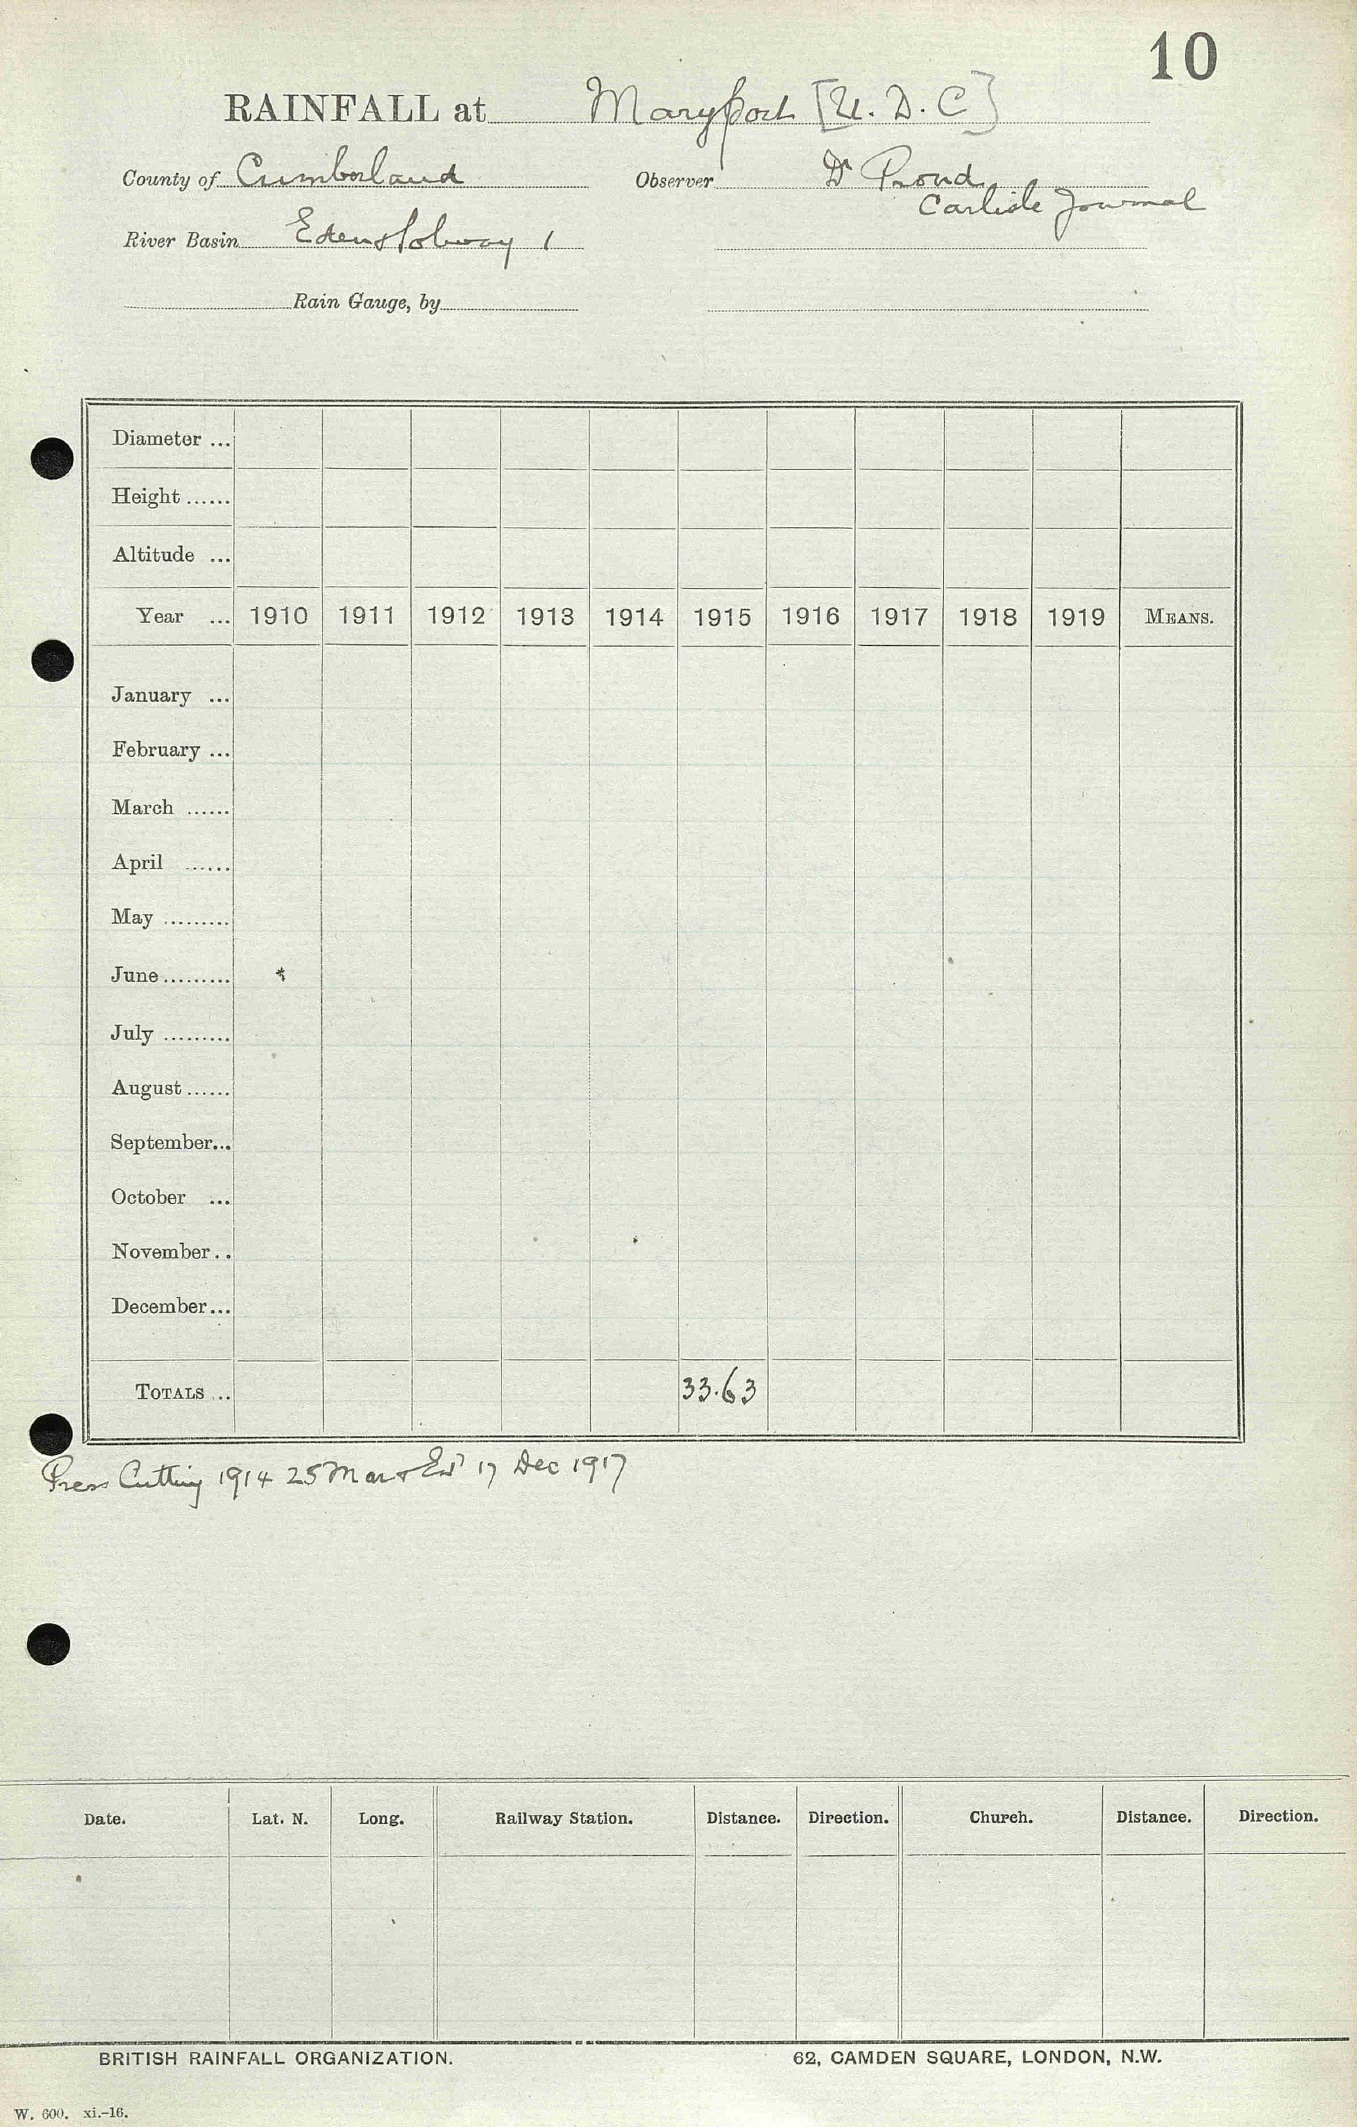 10
RAINFALL at Maryport [U. D. C]
County of Cumberland Observer Dr Proud
Carlisle Journal
River Basin Eden & Solway 1
Rain Gauge, by
Diameter ...
Height ......
Altitude ...
Year ... 1910 1911 1912 1913 1914 1915 1916 1917 1918 1919 MEANS.
January ...
February ...
March ......
April ......
May .........
June .........
July .........
August ......
September...
October ...
November ..
December...
TOTALS ... 33.63
Press Cutting 1914 25 Mar & 17 Dec 1917
Date. Lat. N. Long. Railway Station. Distance. Direction. Church. Distance. Direction.
BRITISH RAINFALL ORGANIZATION. 62, CAMDEN SQUARE, LONDON, N.W.
W. 600. xi.-16.